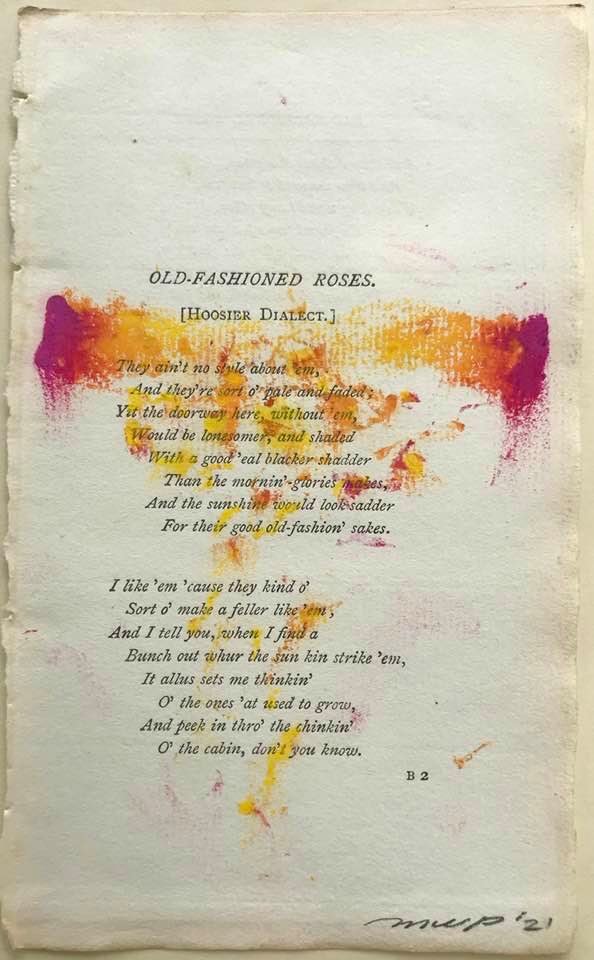 OLD-FASHIONED ROSES.
[HOOSIER DIALECT.]
They ain't no style about 'em,
And they're sort o' pale and faded;
Yit the doorway here, without 'em,
Would be lonesomer, and shaded
With a good 'eal blacker shadder
Than the mornin'-glories makes,
And the sunshine would look sadder
For their good old-fashion' sakes.
I like 'em 'cause they kind o'
Sort o' make a feller like 'em;
And I tell you, when I find a
Bunch out whur the sun kin strike 'em,
It allus sets me thinkin'
O' the ones 'at used to grow,
And peek in thro' the chinkin'
O' the cabin, don't you know.
B 2
'21